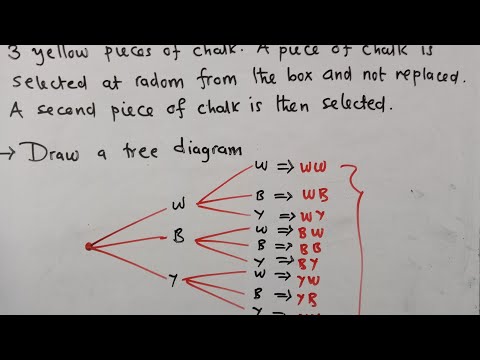 3 yellow pieces of chalk. A piece of chalk is
selected at radom from the box and not replaced.
A second piece of chalk is then selected.
→ Draw a tree diagram
W ⇒ WW
B ⇒ WB
W
Y ⇒ WY
W ⇒ BW
B
B ⇒ BB
Y ⇒ BY
W ⇒ YW
Y
B ⇒ YB
Y ⇒